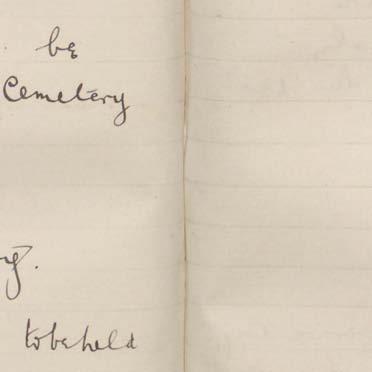 be
Cemetery
to be held